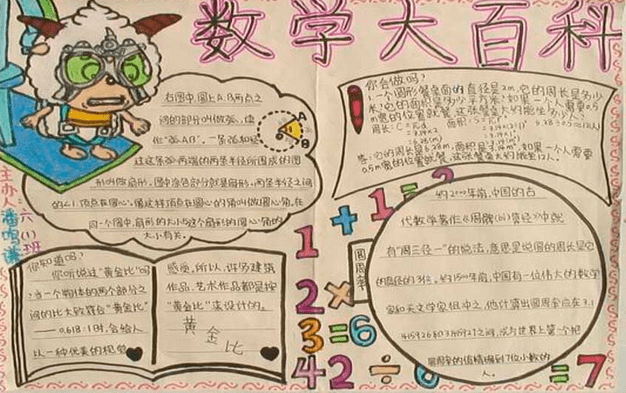 数学大百科
右图中,圆上A、B两点之
间的部分叫做弧,读
作"弧AB",一条弧和经
过这条弧两端的两条半径所围成的图
形叫做扇形。图中涂色部分就是扇形。两条半径之间
的∠1,顶点在圆心。像这样顶点在圆心的角叫做圆心角。在
同一个圆中,扇形的大小与这个扇形的圆心角的
大小有关。
A
B
你会做吗?
1.一个圆形餐桌面的直径是2m,它的周长是多少
米?它的面积是多少平方米?如果一个人需要0.5
m宽的位置就餐,这张餐桌大约能坐多少人?
答:它的周长是6.28m,面积是3.14m²,如果一个人需要
0.5m宽的位置就餐,这张餐桌大约能坐12人。
主办人:
六(1)班
你知道吗?
你听说过"黄金比"吗
?当一个物体的两个部分之
间的比大致符合"黄金比"
——0.618:1时,会给人
以一种优美的视觉
感受。所以,许多建筑
作品、艺术作品都是按
"黄金比"来设计的。
黄金比
1+1=2
2×
3=6
42÷6=7
圆周率
约2000年前,中国的古
代数学著作《周髀算经》中就
有"周三径一"的说法,意思是说圆的周长是它
的直径的3倍。约1500年前,中国有一位伟大的数学
家和天文学家祖冲之,他计算出圆周率应在3.1
415926和3.1415927之间,成为世界上第一个把
圆周率的值精确到7位小数的
人。